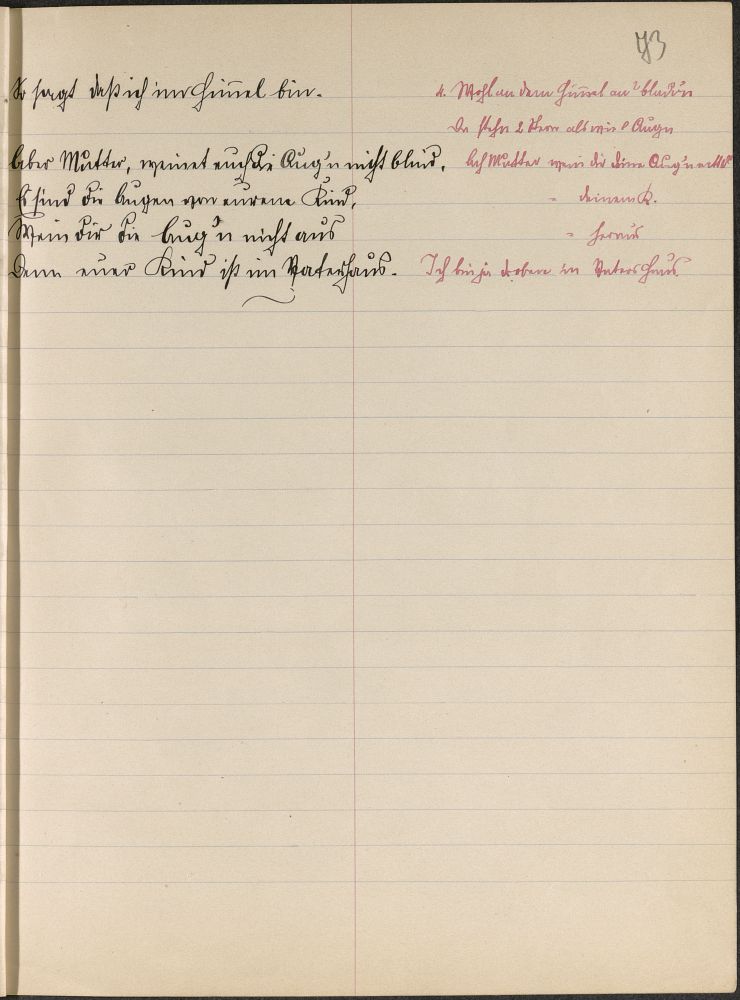 43
So sagt daß ich im Himmel bin.
Aber Mutter, weinet euch die Aug'n nicht blind,
Es sind die Augen von eurem Kind,
Wein dir die Aug'n nicht aus
Denn euer Kind ist im Vaterhaus.
4. Wohl an dem Himmel an
Da stehn 2 Stern als wie Augn
Ach Mutter wein dir deine Aug'n
" deinem K.
" heraus
Ich bin ja droben in Vaters Haus